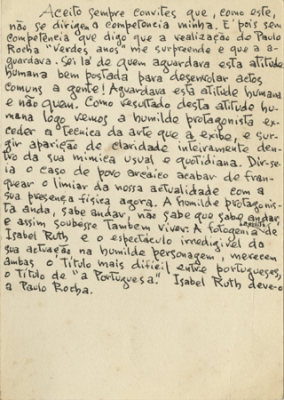 Aceito sempre convites que, como este,
não se dirigem a competencia minha. E' pois sem
competencia que digo que a realização de Paulo
Rocha "Verdes anos" me surpreende e que a a-
guardava. Sei lá de quem aguardava esta atitude
humana bem postada para desenrolar actos
comuns a gente! Aguardava esta atitude humana
e não quem. Como resultado desta atitude hu-
mana logo vemos a humilde protagonista ex-
ceder a tecnica da arte que a exibe, e sur-
gir aparição de claridade inteiramente den-
tro da sua mimica usual e quotidiana. Dir-se-
ia o caso de povo arcaico acabar de fran-
quear o limiar da nossa actualidade com a
sua presença fisica agora. A humilde protagonis-
ta anda, sabe andar, não sabe que sabe andar,
e assim soubesse tambem viver. A fotogenia de
Isabel Ruth e o espectaculo irredigivel da
sua actuação na humilde personagem, merecem
ambas o titulo mais dificil entre portugueses,
o titulo de "a Portuguesa". Isabel Ruth deve-o
a Paulo Rocha.